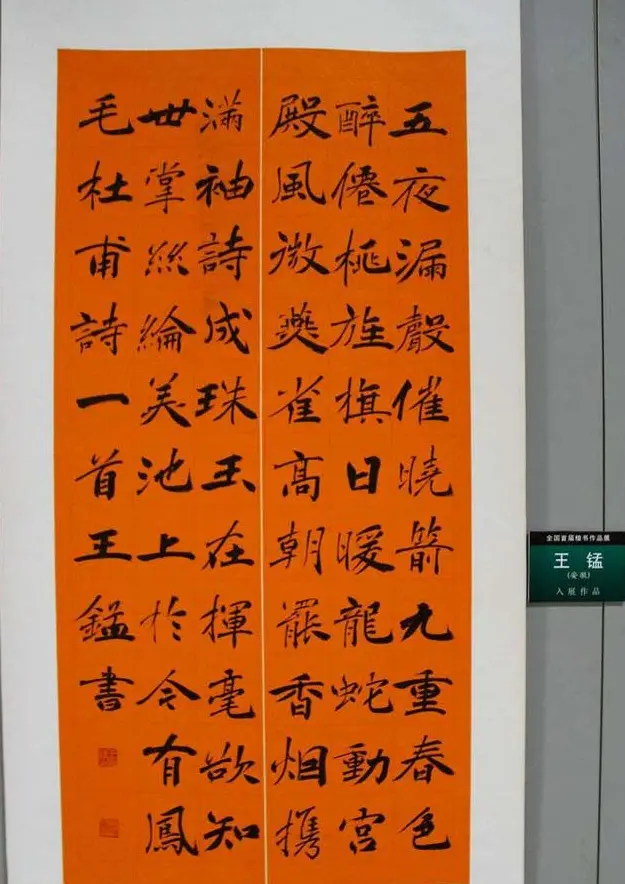 五夜漏聲催曉箭九重春色
醉僊桃旌旗日暖龍蛇動宮
殿風微燕雀高朝罷香烟携
滿袖詩成珠玉在揮毫欲知
世掌絲綸美池上於今有鳳
毛杜甫詩一首王錳書
全国首届楷书作品展
王 锰
(安徽)
入展作品